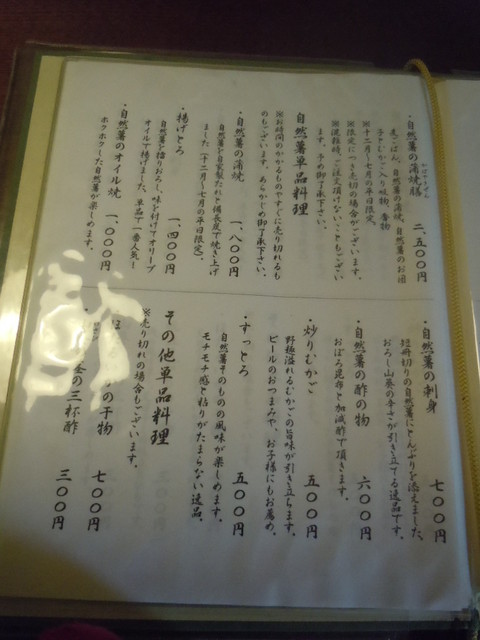 ・自然薯の蒲焼膳 二、五〇〇円
かばやきぜん
麦ごはん、自然薯の蒲焼、自然薯のお団
子とむかご入り吸物、香物
※十二月〜七月の平日限定、
※限定につき売切の場合がございます。
※混雑時、ご注文頂けないこともござい
ます。予め御了承下さい。
自然薯単品料理
※お時間のかかるものやすぐに売り切れるも
のもございます。あらかじめ御了承下さい。
・自然薯の蒲焼 一、八〇〇円
自然薯を自家製たれと備長炭で焼き上げ
ました（十二月〜七月の平日限定）、
・揚げとろ 一、四〇〇円
自然薯を摺りおろし、味を付けてオリーブ
オイルで揚げました。単品で一番人気！
・自然薯のオイル焼 一、〇〇〇円
ホクホクした自然薯が楽しめます。
・自然薯の刺身 七〇〇円
短冊切りの自然薯にとんぶりを添えました、
おろし山葵の辛さが引き立てる逸品です。
・自然薯の酢の物 六〇〇円
おぼろ昆布と加減酢で頂きます。
・炒りむかご 五〇〇円
野趣溢れるむかごの旨味が引き立ちます。
ビールのおつまみや、お子様にもお薦め、
・すっとろ 五〇〇円
自然薯そのものの風味が楽しめます。
モチモチ感と粘りがたまらない逸品、
その他単品料理
※売り切れの場合もございます。
の干物 七〇〇円
の三杯酢 三〇〇円